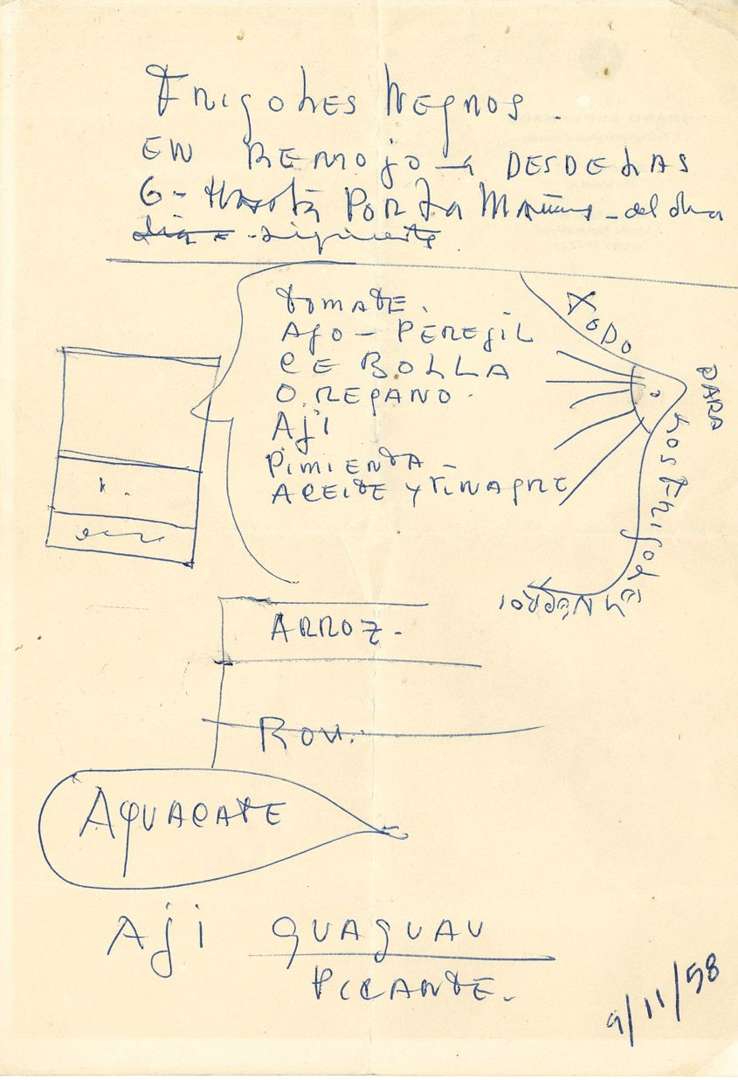 Frigoles Negros.
EN REMOJO - DESDE LAS
6 - Hasta POR La Mañana - del dia
dia - siguiente
TOMATE.
AJO - PEREJIL
CEBOLLA
OREGANO.
AJI
PIMIENTA
ACEITE Y VINAGRE
TODO
PARA
LOS FRIJOLES
NEGROS
ARROZ.
RON.
AGUACATE
AJI GUAGUAU
PICANTE.
9/11/58